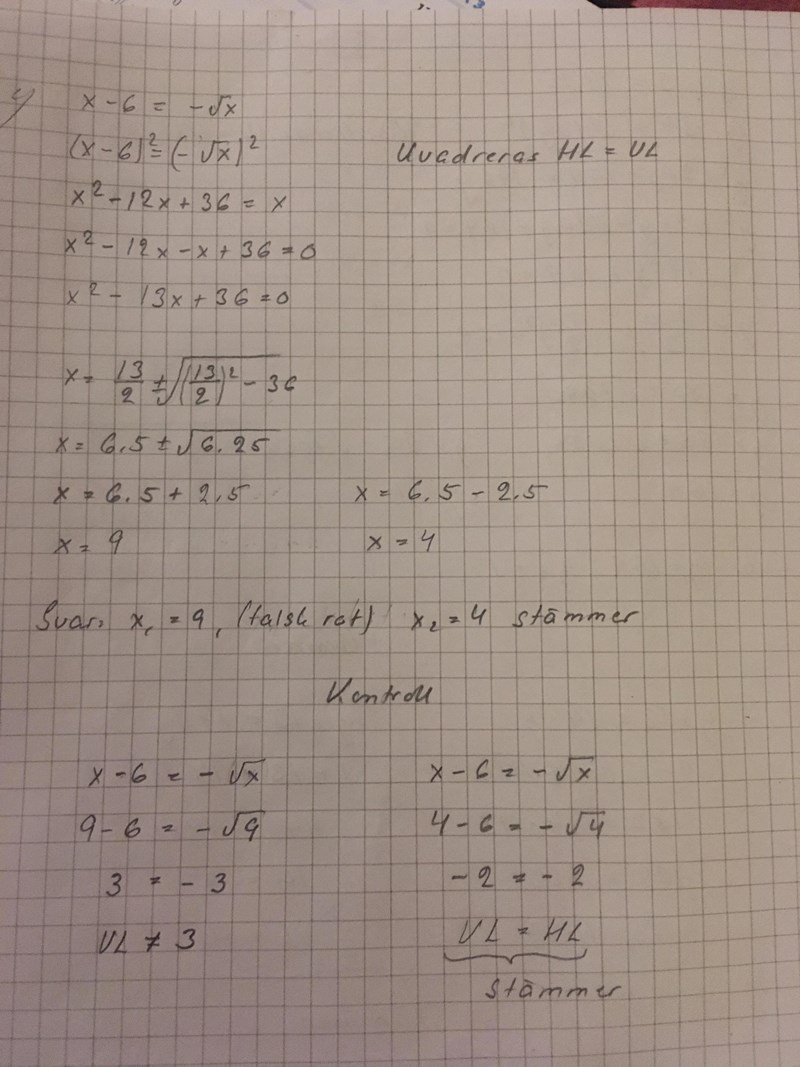 4) x - 6 = -√x
(x - 6)² = (-√x)² Kvadreras HL = VL
x² - 12x + 36 = x
x² - 12x - x + 36 = 0
x² - 13x + 36 = 0
x = 13/2 ± √((13/2)² - 36
x = 6.5 ± √6.25
x = 6.5 + 2.5 x = 6.5 - 2.5
x = 9 x = 4
Svar: x₁ = 9, (falsk rot) x₂ = 4 stämmer
Kontroll
x - 6 = -√x x - 6 = -√x
9 - 6 = -√9 4 - 6 = -√4
3 = -3 -2 = -2
VL ≠ 3 VL = HL
stämmer